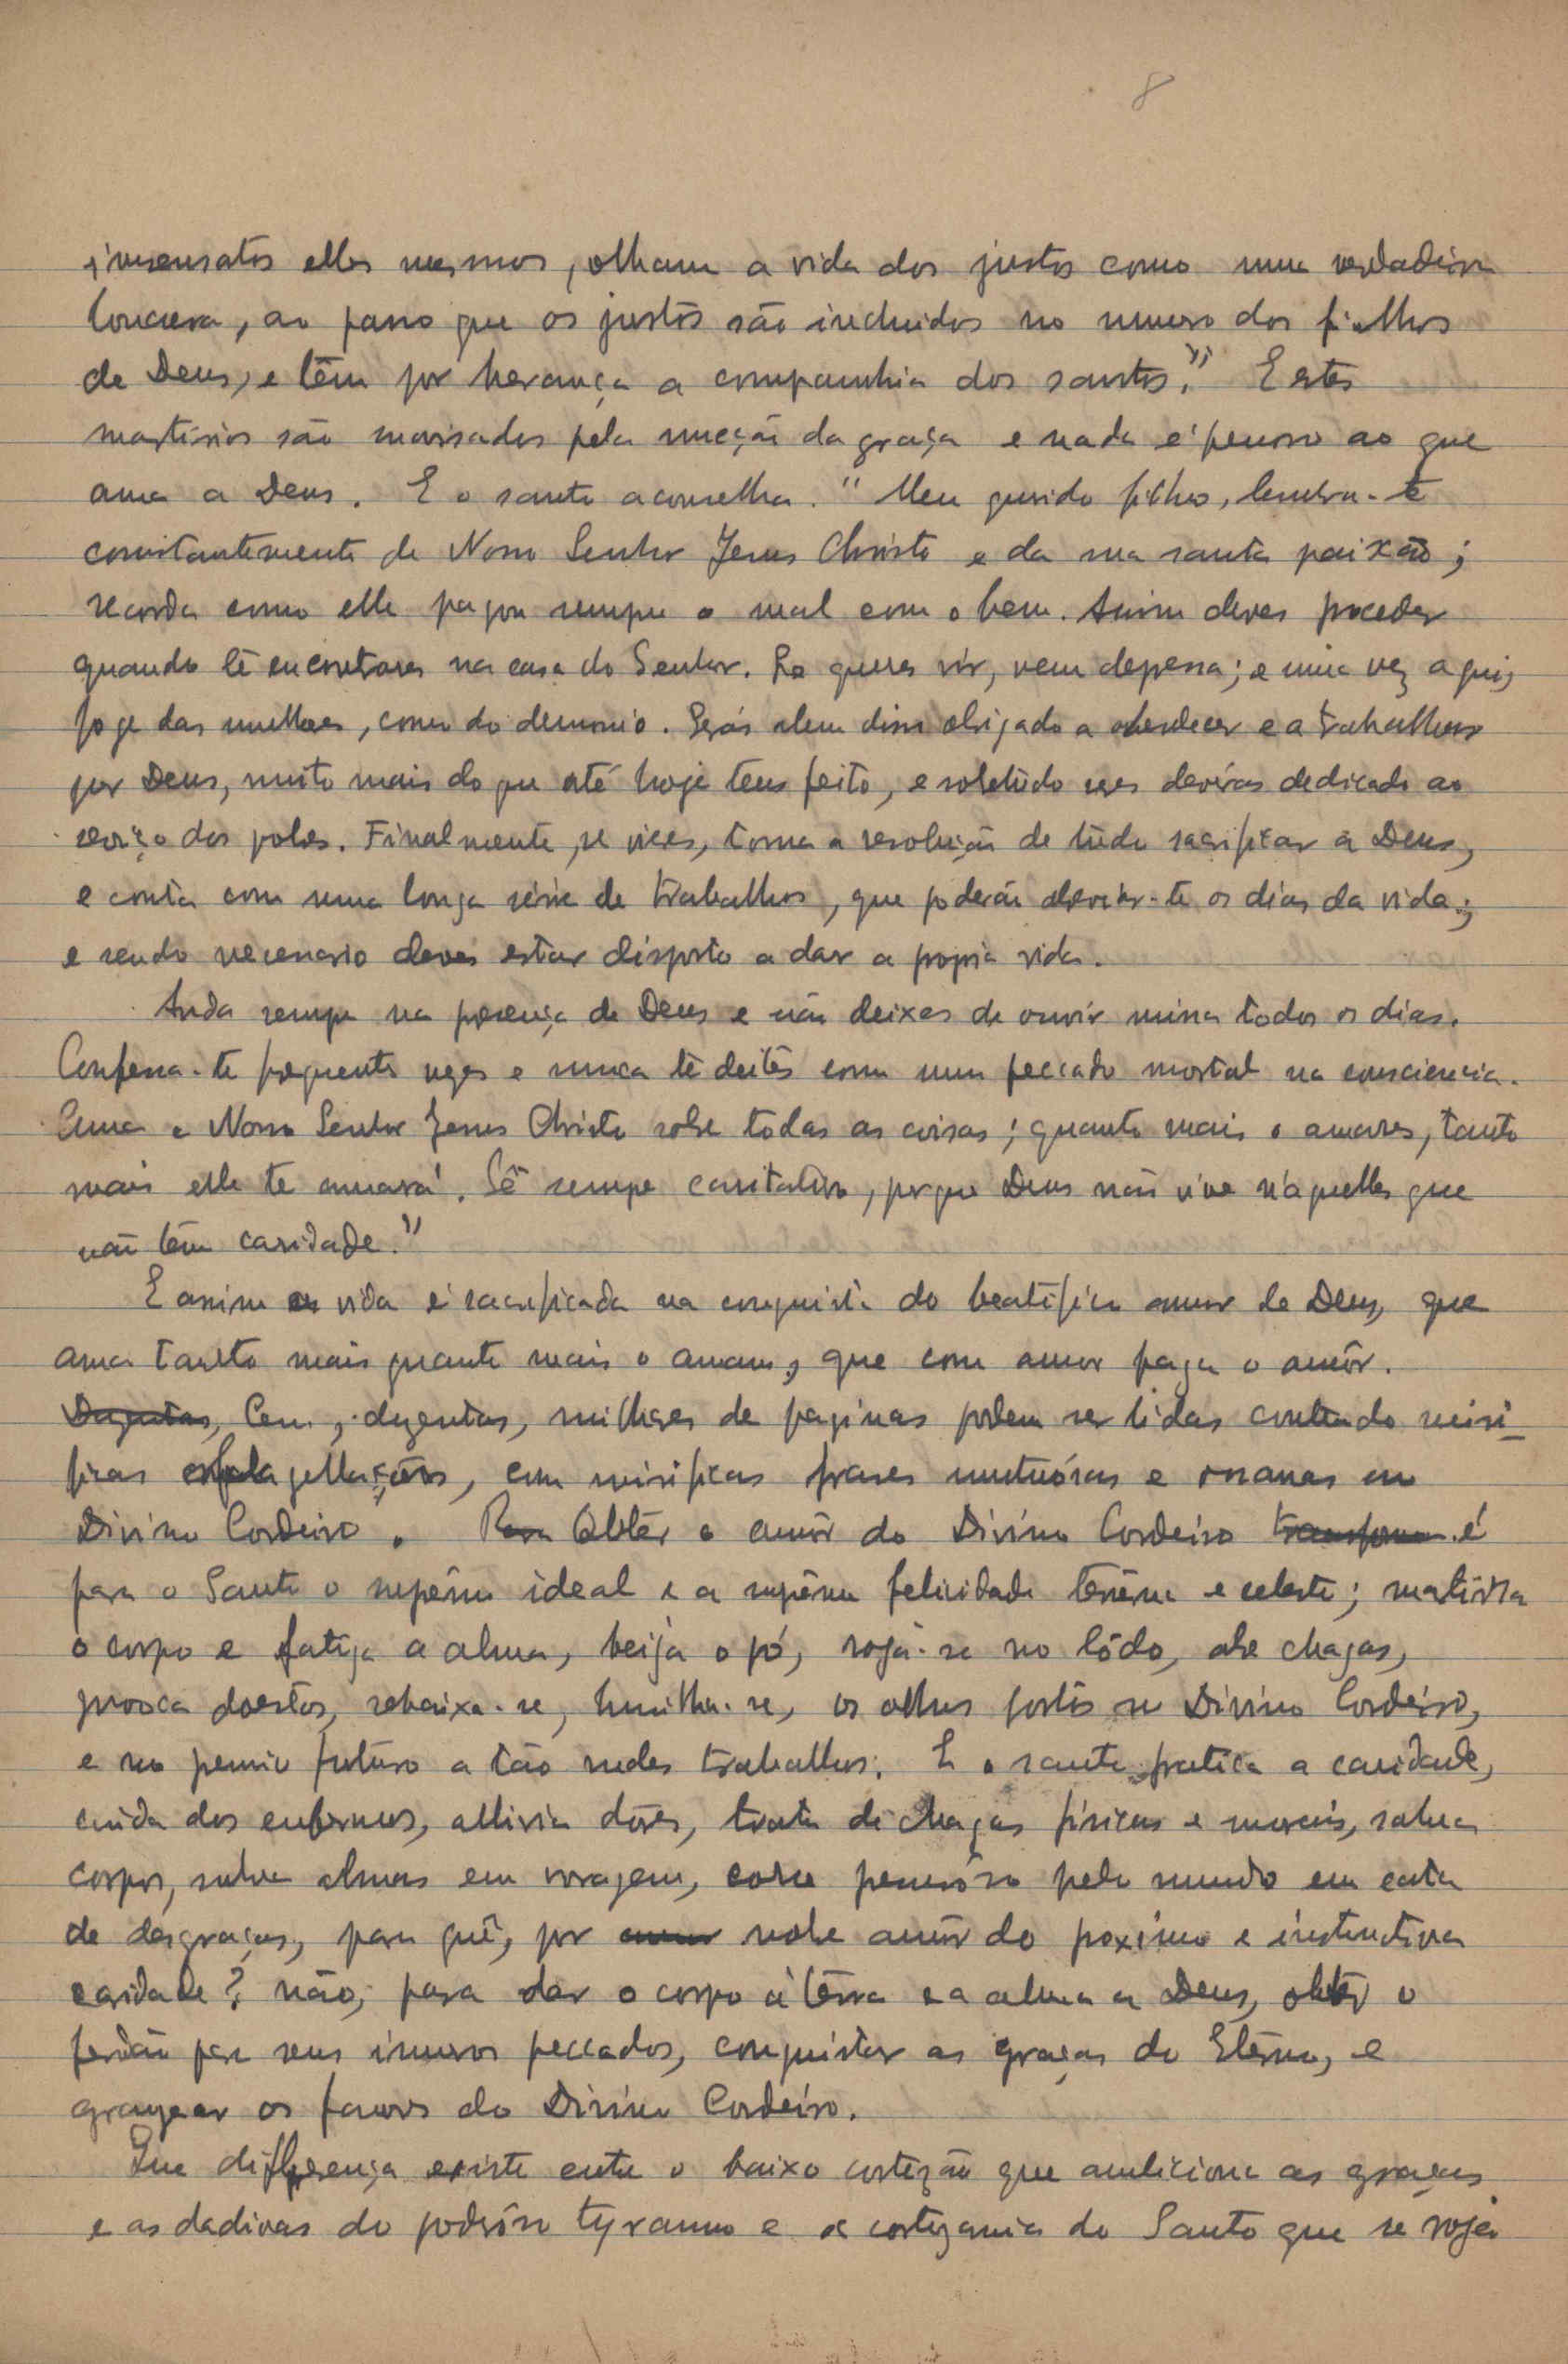 8
insensatos elles mesmos, olham a vida dos justos como uma verdadeira
loucura, ao passo que os justos são incluidos no numero dos filhos
de Deus, e têm por herança a companhia dos santos." E estes
martirios são suavisados pela uncção da graça e nada é penoso ao que
ama a Deus. E o santo aconselha. "Meu querido filho, lembra-te
constantemente de Nosso Senhor Jesus Christo e da sua santa paixão;
recorda como elle pagou sempre o mal com o bem. Assim deves proceder
quando te encontrares na casa do Senhor. Se queres vir, vem depressa; e uma vez aqui,
foge das mulheres, como do demonio. Serás alem disso obrigado a obedecer e a trabalhar
por Deus, muito mais do que até hoje tens feito, e sobretudo ser devéras dedicado ao
serviço dos pobres. Finalmente, se vires, toma a resolução de tudo sacrificar a Deus,
e conta com uma longa série de trabalhos, que poderão abreviar-te os dias da vida;
e sendo necessario deves estar disposto a dar a propria vida.
Anda sempre na presença de Deus e não deixes de ouvir missa todos os dias.
Confessa-te frequentes vezes e nunca te deites com um peccado mortal na consciencia.
Ama a Nosso Senhor Jesus Christo sobre todas as coisas; quanto mais o amares, tanto
mais elle te amará. Sê sempre caritativo, porque Deus não vive n'aquelles que
não têm caridade."
E assim a vida é sacrificada na conquista do beatifico amor de Deus, que
ama tanto mais quanto mais o amam, que com amor paga o amôr.
Duzentas, Cem, duzentas, milhares de paginas podem ser lidas contendo miri-
ficas flagellações, com mirificas frases untuósas e
Divino Cordeiro. Para Obtêr o amôr do Divino Cordeiro transforma é
para o Santo o suprêmo ideal e a suprêma felicidade terrêna e celeste; martirisa
o corpo e fatiga a alma, beija o pó, roja-se no lôdo, abre chagas,
provoca doestos, rebaixa-se, humilha-se, os olhos postos no Divino Cordeiro,
e no premio futuro a tão rudes trabalhos. E o santo pratica a caridade,
cuida dos enfermos, allivia dôres, trata de chagas fisicas e moraes, salva
corpos, salva almas em voragem, corre pressurôso pelo mundo em cata
de desgraças, para quê, por amor nobre amôr do proximo e instinctiva
caridade? não, para dar o corpo á térra e a alma a Deus, obtêr o
perdão para seus imensos peccados, conquistar as graças do Etérno, e
grangear os favores do Divino Cordeiro.
Que differença existe entre o baixo cortezão que ambiciona as graças
e as dadivas do poderôso tyranno e a cortezania do Santo que se roja